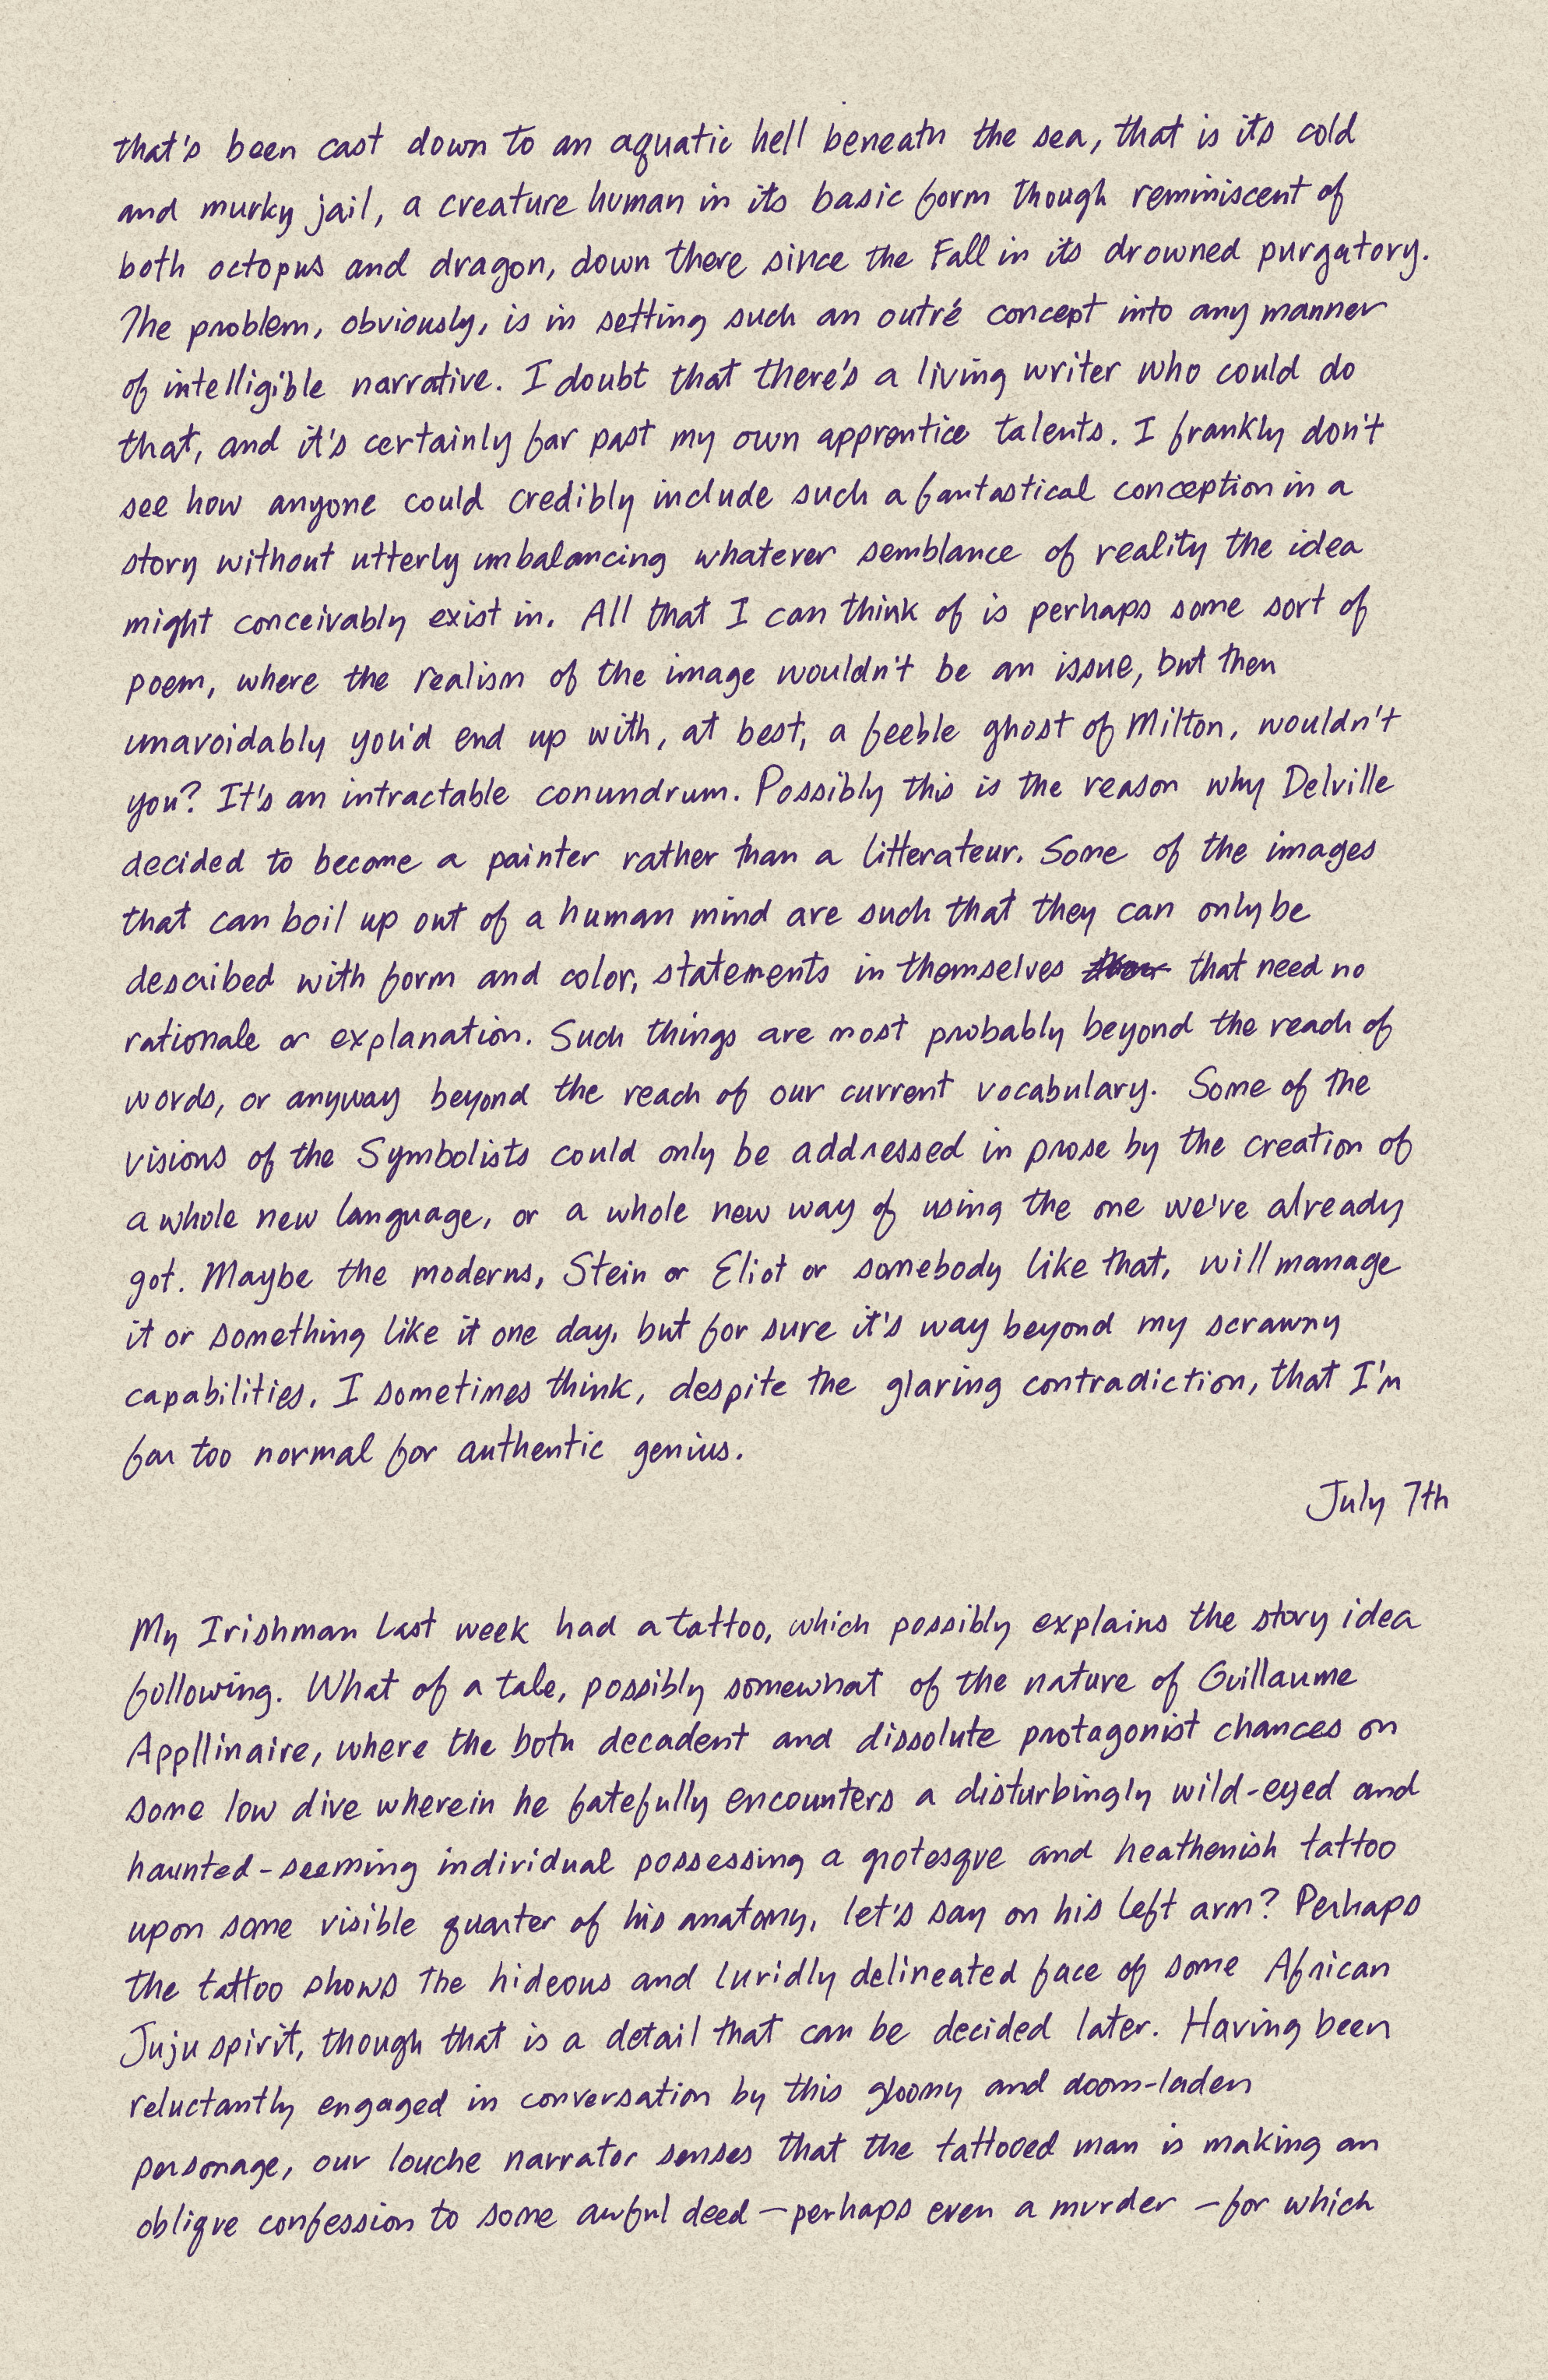 that's been cast down to an aquatic hell beneath the sea, that is its cold
and murky jail, a creature human in its basic form though reminiscent of
both octopus and dragon, down there since the Fall in its drowned purgatory.
The problem, obviously, is in setting such an outré concept into any manner
of intelligible narrative. I doubt that there's a living writer who could do
that, and it's certainly far past my own apprentice talents. I frankly don't
see how anyone could credibly include such a fantastical conception in a
story without utterly unbalancing whatever semblance of reality the idea
might conceivably exist in. All that I can think of is perhaps some sort of
poem, where the realism of the image wouldn't be an issue, but then
unavoidably you'd end up with, at best, a feeble ghost of Milton, wouldn't
you? It's an intractable conundrum. Possibly this is the reason why Delville
decided to become a painter rather than a litterateur. Some of the images
that can boil up out of a human mind are such that they can only be
described with form and color, statements in themselves that need no
rationale or explanation. Such things are most probably beyond the reach of
words, or anyway beyond the reach of our current vocabulary. Some of the
visions of the Symbolists could only be addressed in prose by the creation of
a whole new language, or a whole new way of using the one we've already
got. Maybe the moderns, Stein or Eliot or somebody like that, will manage
it or something like it one day, but for sure it's way beyond my scrawny
capabilities. I sometimes think, despite the glaring contradiction, that I'm
far too normal for authentic genius.
July 7th
My Irishman last week had a tattoo, which possibly explains the story idea
following. What of a tale, possibly somewhat of the nature of Guillaume
Appllinaire, where the both decadent and dissolute protagonist chances on
some low dive wherein he fatefully encounters a disturbingly wild-eyed and
haunted-seeming individual possessing a grotesque and heathenish tattoo
upon some visible quarter of his anatomy, let's say on his left arm? Perhaps
the tattoo shows the hideous and luridly delineated face of some African
Juju spirit, though that is a detail that can be decided later. Having been
reluctantly engaged in conversation by this gloomy and doom-laden
personage, our louche narrator senses that the tattooed man is making an
oblique confession to some awful deed – perhaps even a murder – for which